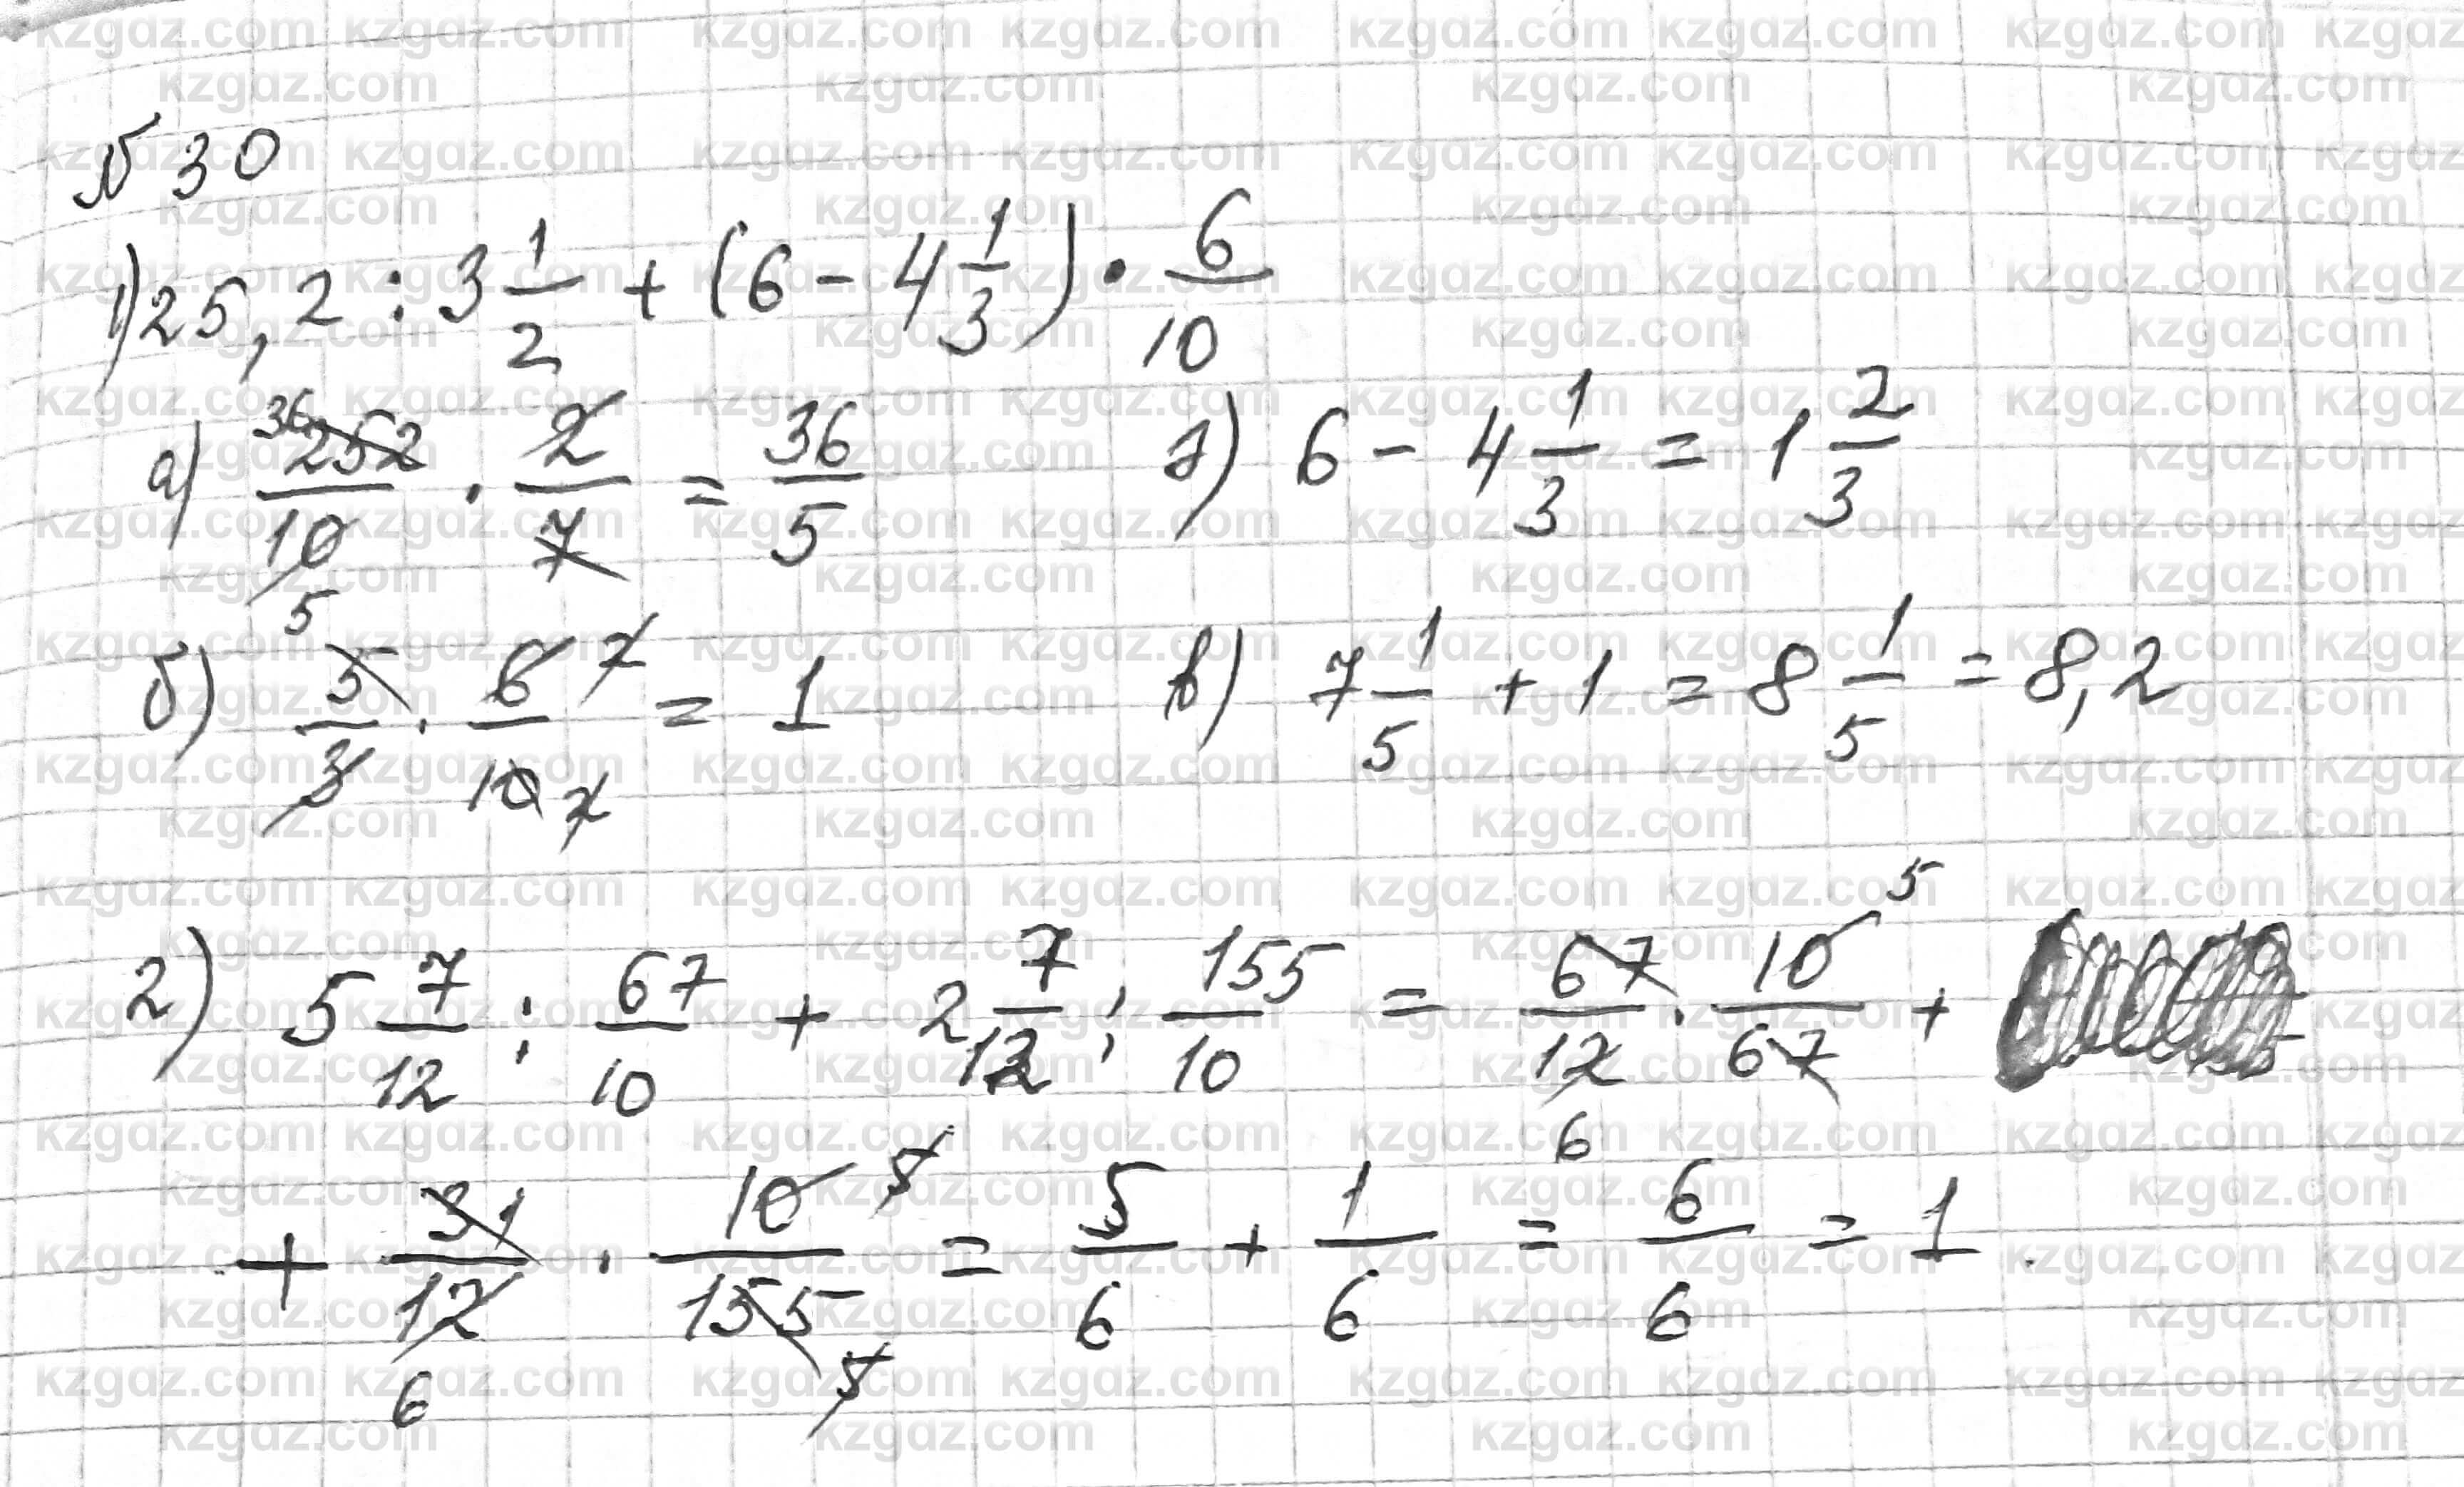 № 30
1) 25,2 : 3 1/2 + (6 - 4 1/3) · 6/10
а) 36 252/10 5 · 2/7 = 36/5 а) 6 - 4 1/3 = 1 2/3
б) 5/3 · 6 2/10 2 = 1 в) 7 1/5 + 1 = 8 1/5 = 8,2
2) 5 7/12 : 67/10 + 2 7/12 : 155/10 = 67/12 6 · 10 5/67 +
+ 31/12 6 · 10 5/155 5 = 5/6 + 1/6 = 6/6 = 1.
kzgdz.com